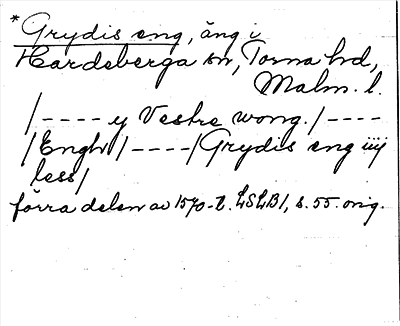 *Grydis eng, äng i
Hardeberga sn, Torna hd,
Malm. l.
/---- y Vestre wong./----
/Engh/----/Grydis eng iiij
less/
förra delen av 1570-t. LSLB1, s. 55. orig.